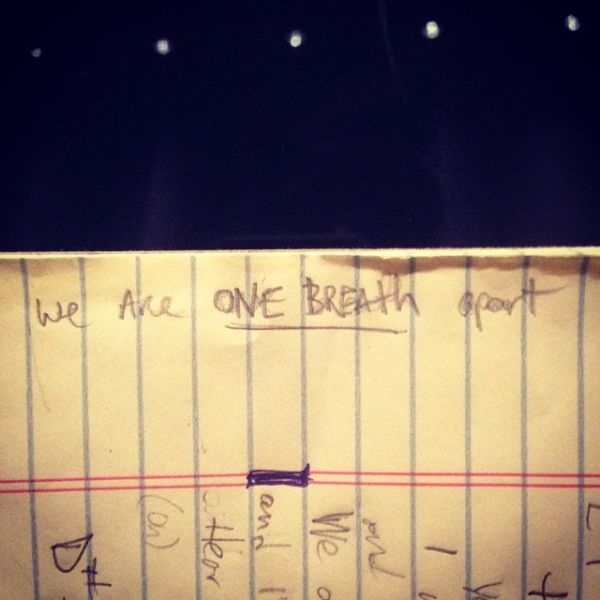 we Are ONE BREAth apart
I
and
We
and
either
(on)
D#